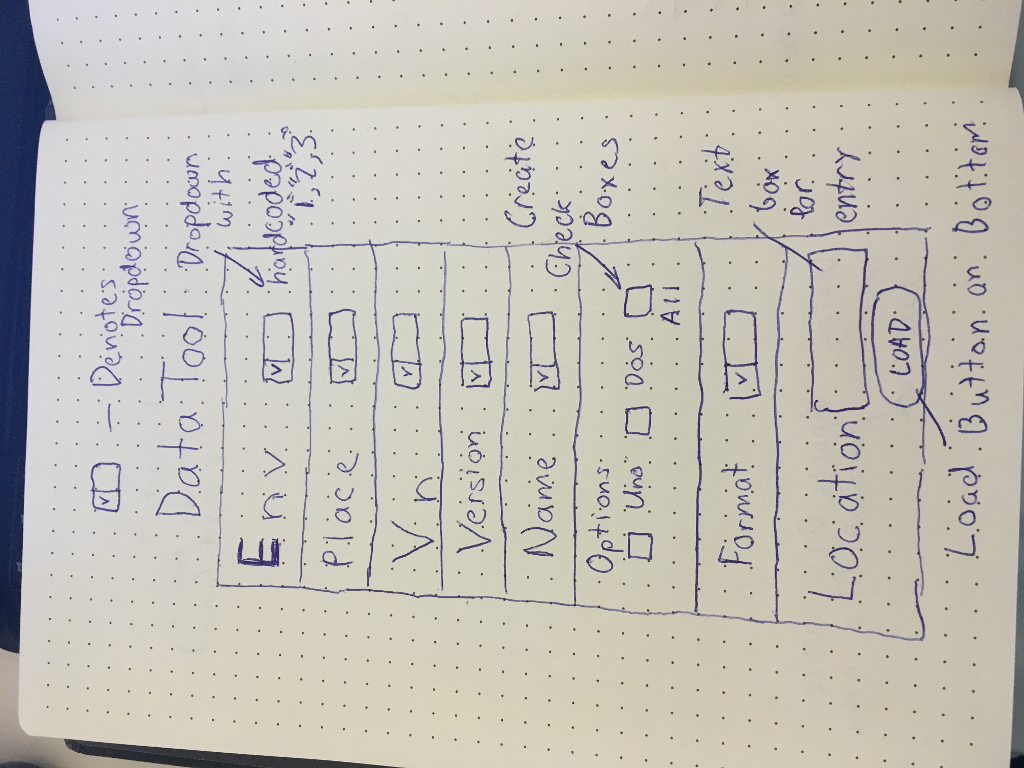 — Denotes
Dropdown
Data Tool
Dropdown
with
hardcoded
"1","2","3"
Env
Place
Vn
Version
Name
Create
Check
Boxes
Options
Uno
Dos
All
Format
Text
box
for
entry
Location
LOAD
Load Button on Bottom